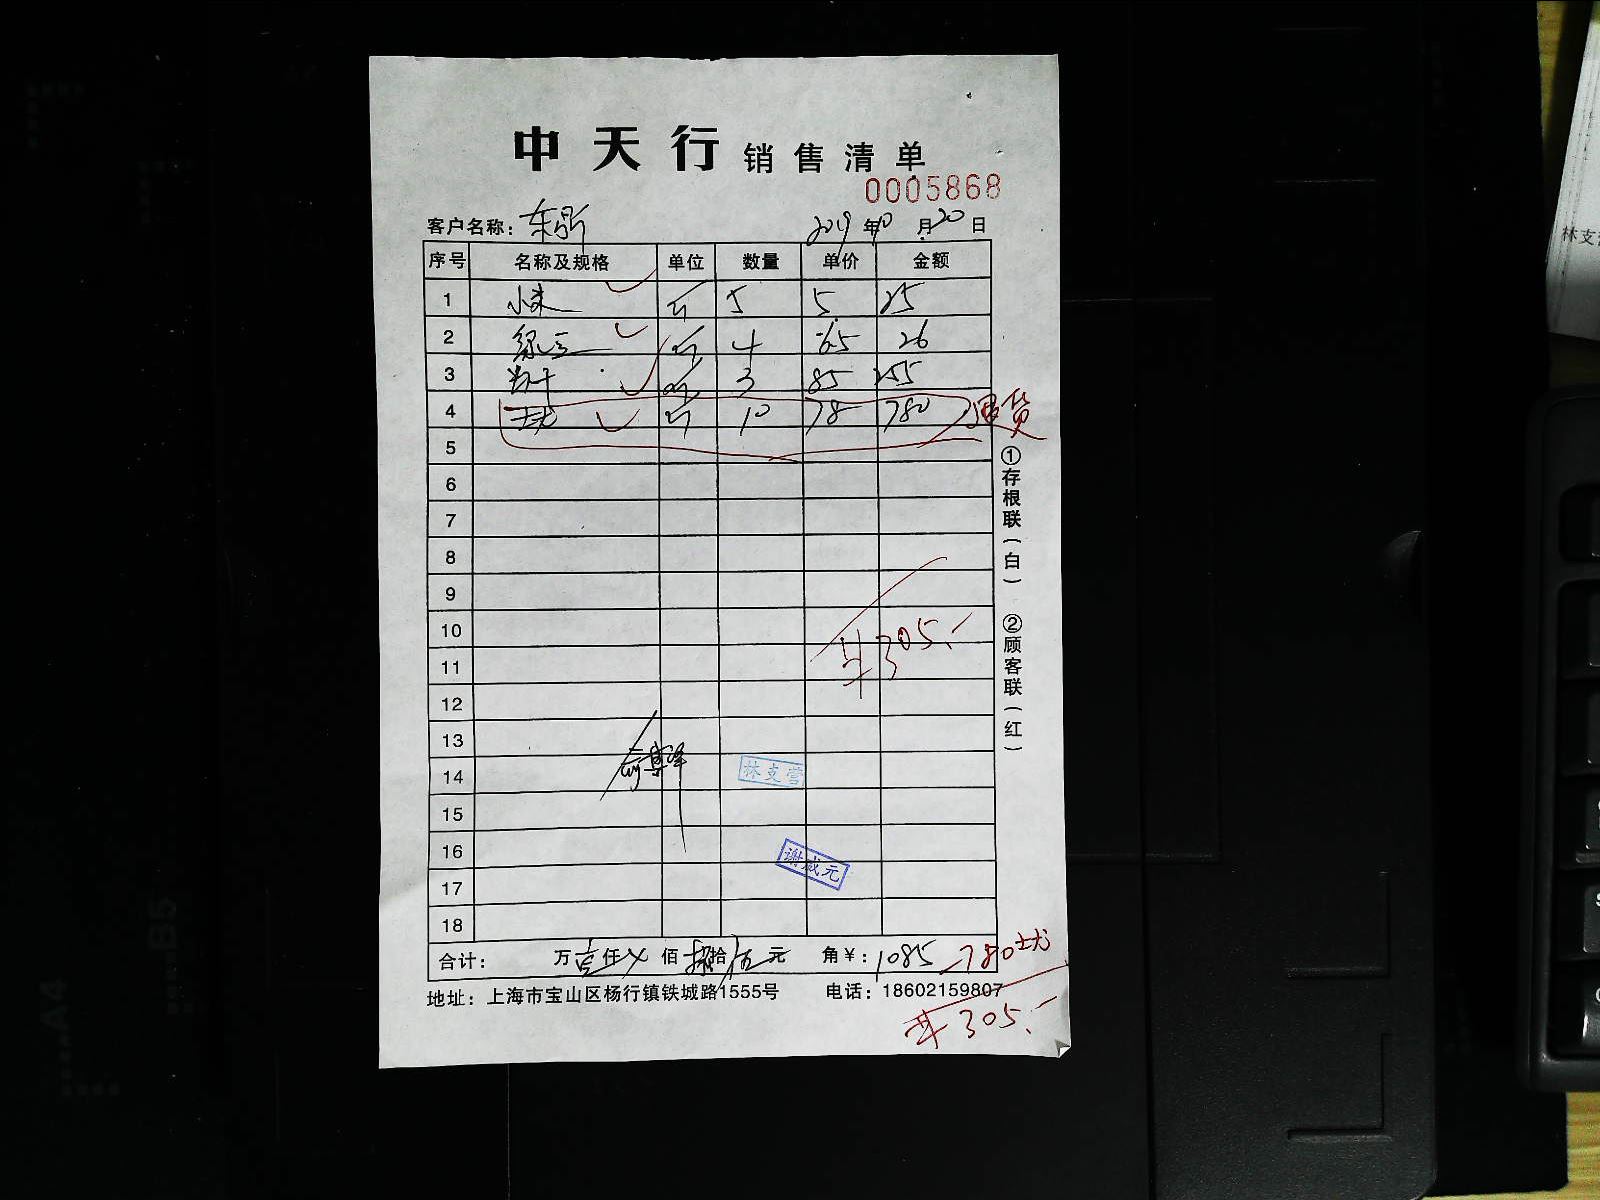 中天行 销售清单
0005868
客户名称： 2019年10月20日
序号 名称及规格 单位 数量 单价 金额
1 小米 斤 5 5. 25
2 绿豆 斤 4 6.5 26
3 斤 3 85 255
4 斤 10 78 780 退货
5
6
7
8
9
10
11
12
13
14
15
16
17
18
共305.-
林支营
谢成元
合计： 万壹仟 佰捌拾伍元 角¥：1085 -780
共305.-
地址：上海市宝山区杨行镇铁城路1555号 电话：18602159807
①存根联（白） ②顾客联（红）
林支
A4
B5